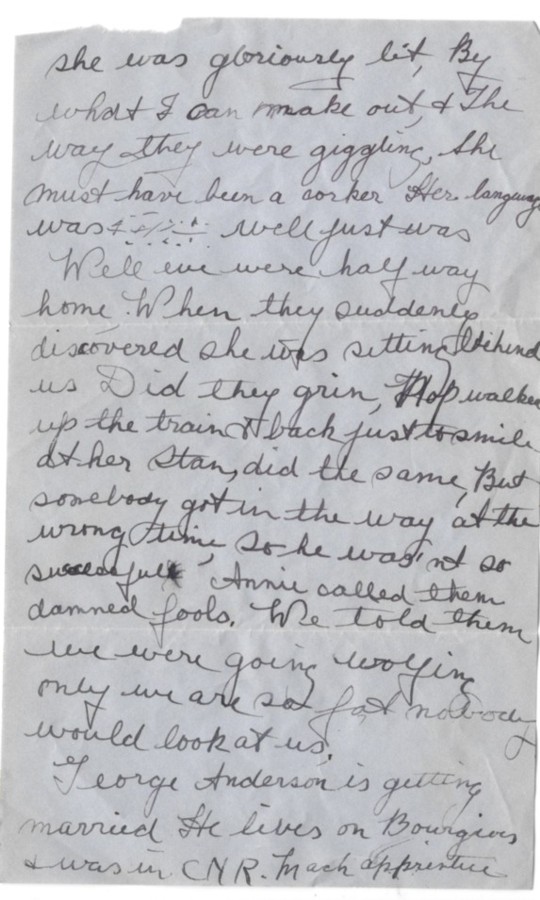 she was gloriously lit, By
what I can make out, & The
way they were giggling, she
must have been a corker Her language
was well just was
Well we were half way
home. When they suddenly
discovered she was setting behind
us Did they grin, walked
up the train & back just to smile
at her Stan, did the same, But
somebody got in the way at the
wrong time, so he was'nt so
sucessfull, Annie called them
damned fools. We told them
we were going wolfing
only we are so fat nobody
would look at us.
George Anderson is getting
married He lives on
& was in CNR. Mach apprentice